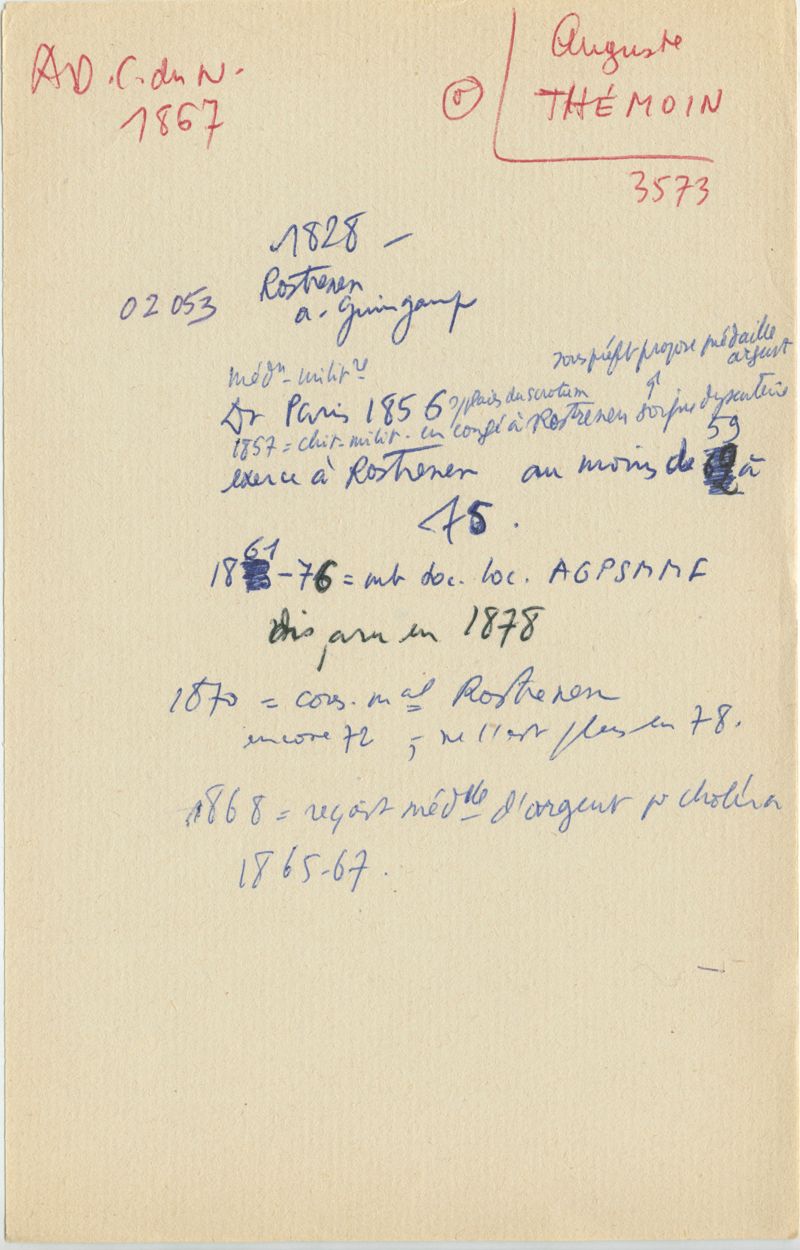 AD. C. du N.
1867
Auguste
THÉMOIN
3573
1828 –
02 053
Rostrenen
a. Guingamp
sous préfet propose médaille
argent
médn - militre
Dr Paris 1856 plaies du scrotum
1857 = chir. milit. en congé à Rostrenen soigne dysenterie
59
exerce à Rostrenen au moins de à
75.
61
18 -76 = mb soc. loc. AGPSMMF
disparu en 1878
1870 = cons. mal Rostrenen
encore 72 ; ne l'est plus en 78.
1868 = reçoit médlle d'argent pr choléra
1865-67.